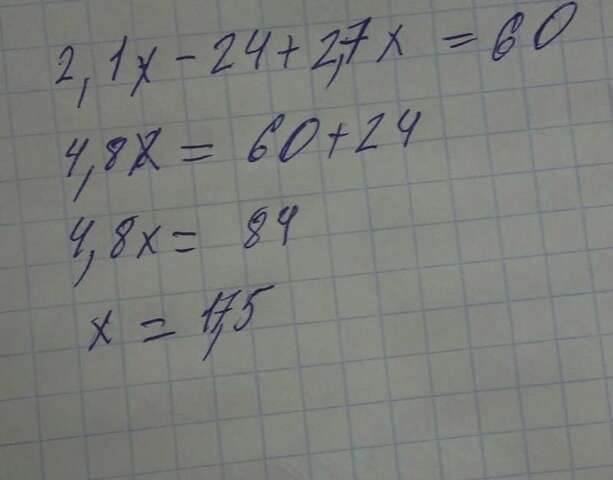 2,1x - 24 + 2,7x = 60
4,8x = 60 + 24
4,8x = 84
x = 17,5